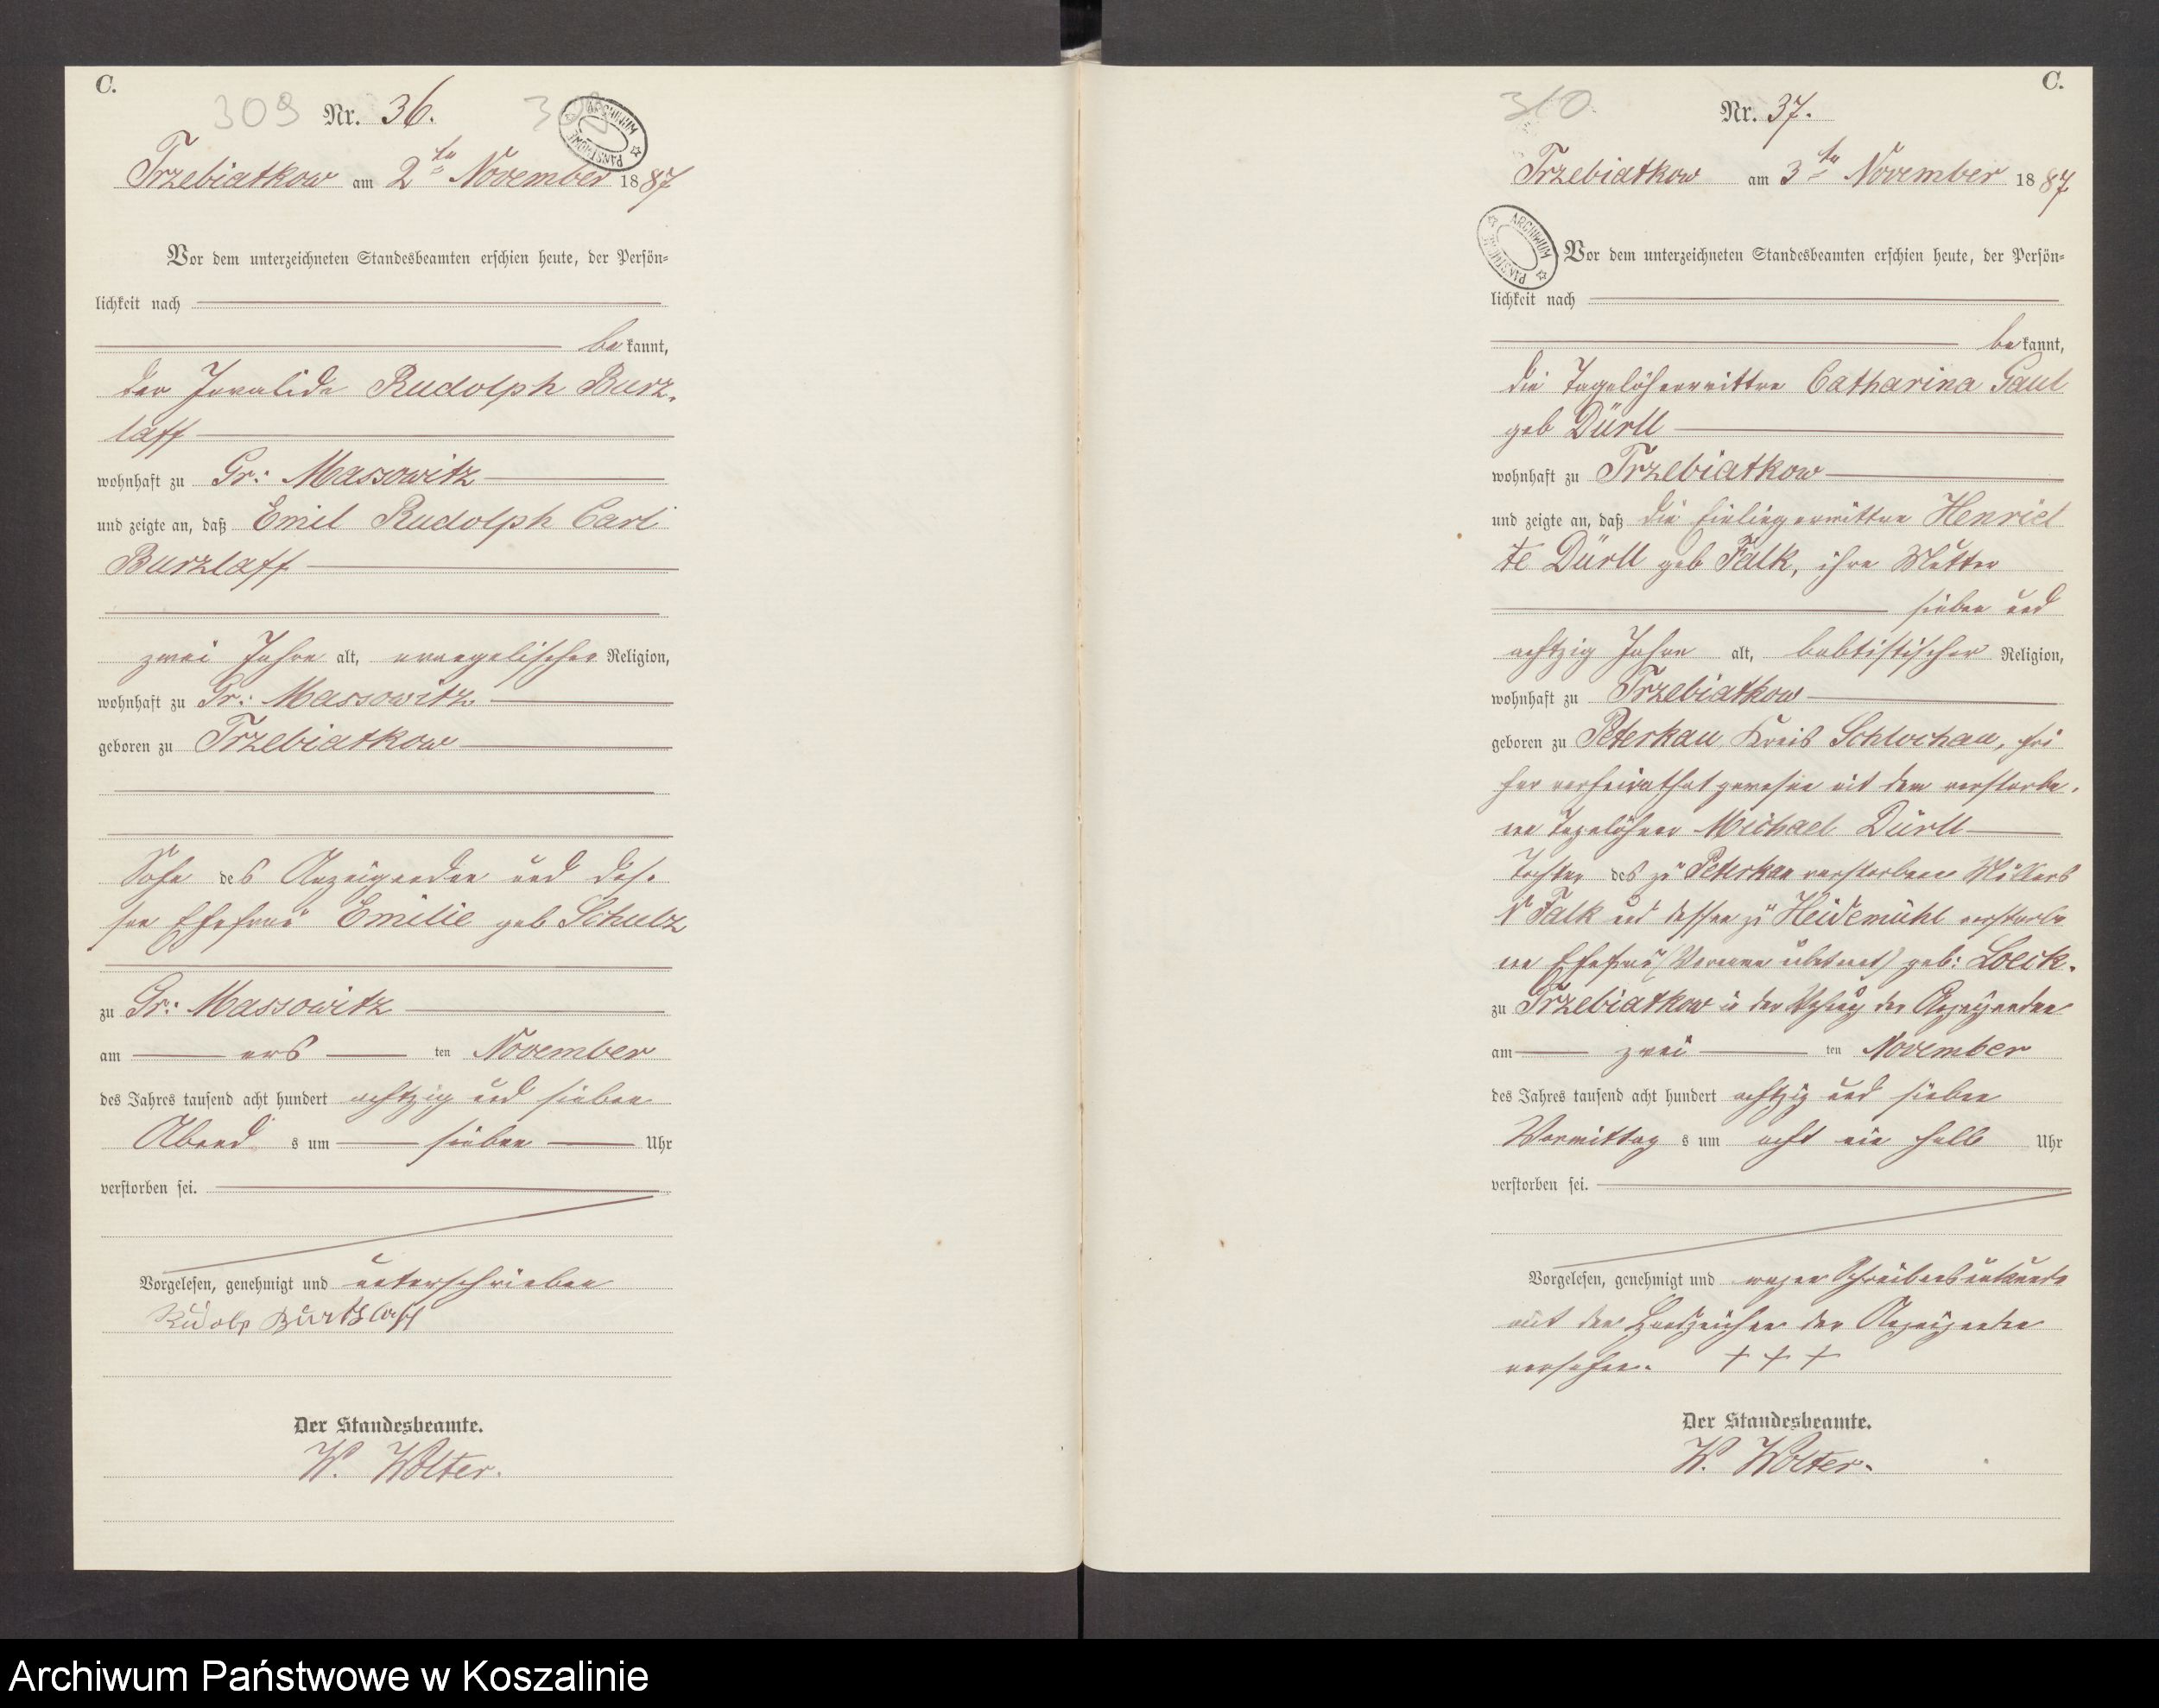 C.
309 Nr. 36. 309
ARCHIWUM PAŃSTWOWE
Trzebiatkow am 2ten November 1887
Vor dem unterzeichneten Standesbeamten erschien heute, der Persön-
lichkeit nach
bekannt,
der Invalide Rudolph Burz-
laff
wohnhaft zu Gr: Massowitz
und zeigte an, daß Emil Rudolph Carl
Burzlaff
zwei Jahre alt, evangelischer Religion,
wohnhaft zu Gr: Massowitz
geboren zu Trzebiatkow
Sohn des Anzeigenden und des-
sen Ehefrau Emilie geb Schulz
zu Gr: Massowitz
am ers ten November
des Jahres tausend acht hundert achtzig und sieben
Abend s um sieben Uhr
verstorben sei.
Vorgelesen, genehmigt und unterschrieben
Rudolf Burtzlaff
Der Standesbeamte.
W. Wolter.
C.
310. Nr. 37.
Trzebiatkow am 3ten November 1887
ARCHIWUM PAŃSTWOWE
Vor dem unterzeichneten Standesbeamten erschien heute, der Persön-
lichkeit nach
bekannt,
die Tagelöhnerwittwe Catharina Gaul
geb Dürll
wohnhaft zu Trzebiatkow
und zeigte an, daß die Einliegerwittwe Henriet
te Dürll geb Falk, ihre Mutter
sieben und
achtzig Jahre alt, babtistischer Religion,
wohnhaft zu Trzebiatkow
geboren zu Peterkau Kreis Schlochau, frü
her verheirathet gewesen mit dem verstorbe-
nen Tagelöhner Michael Dürll
Tochter des zu Peterkau verstorbenen Müllers
N Falk und dessen zu Heidemühl verstorbe
nen Ehefrau (Vorname unbekannt) geb: Loeck.
zu Trzebiatkow in der Wohnung der Anzeigenden
am zwei ten November
des Jahres tausend acht hundert achtzig und sieben
Vormittag s um acht ein halb Uhr
verstorben sei.
Vorgelesen, genehmigt und wegen Schreibensunkunde
mit den Handzeichen der Anzeigenden
versehen. + + +
Der Standesbeamte.
W. Wolter.
Archiwum Państwowe w Koszalinie